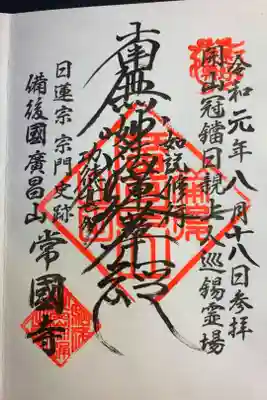 令和元年八月十八日参拝
開山冠鐺日親上人巡錫霊場
如説修行
南無妙法蓮華経
功徳
日蓮宗宗門史跡
備後國廣昌山常國寺